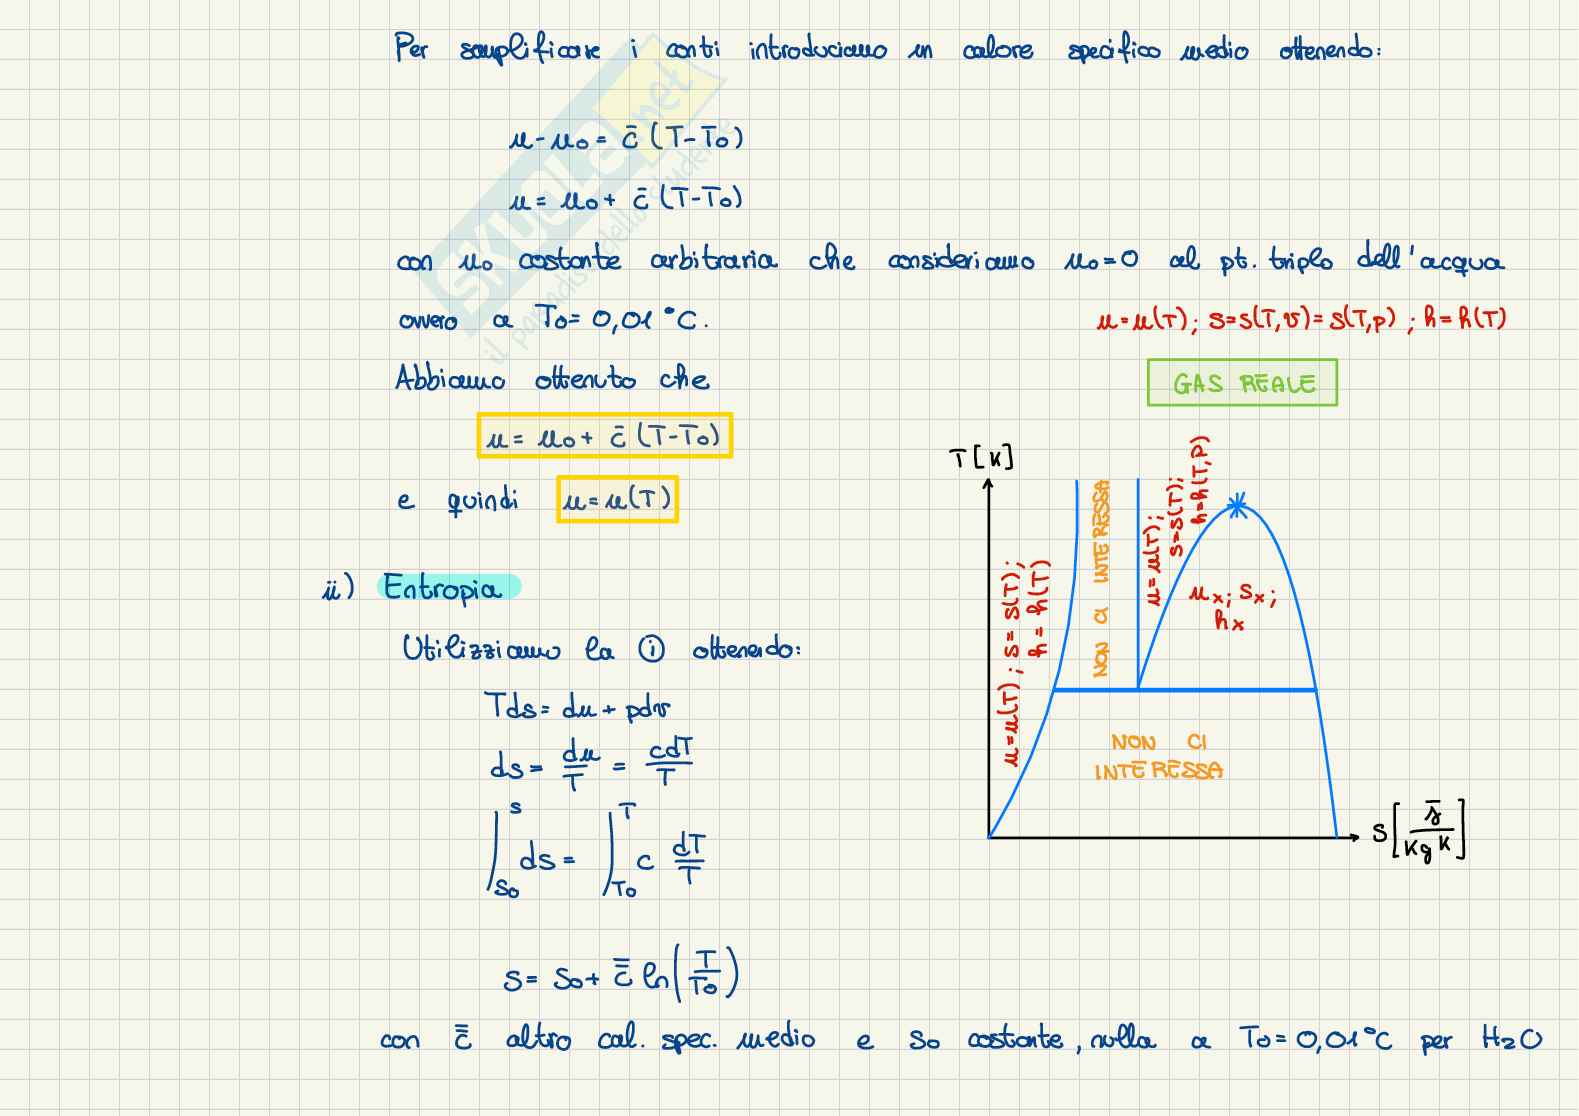 Per semplificare i conti introduciamo un calore specifico medio ottenendo:
u-u₀ = c̄ (T-T₀)
u = u₀ + c̄ (T-T₀)
con u₀ costante arbitraria che consideriamo u₀=0 al pt. triplo dell'acqua
ovvero a T₀= 0,01 °C.
u=u(T); s=s(T,v)=s(T,p); h=h(T)
Abbiamo ottenuto che
GAS REALE
u = u₀ + c̄ (T-T₀)
e quindi u=u(T)
T [K]
u=u(T); s=s(T);
h=h(T)
NON CI INTERESSA
u=u(T);
s=s(T);
h=h(T,P)
uₓ; sₓ;
hₓ
NON CI
INTERESSA
S [ J / Kg K ]
ii) Entropia
Utilizziamo la ① ottenendo:
Tds = du + pdv
ds = du/T = cdT/T
∫ₛ₀ˢ ds = ∫ᴛ₀ᵀ c dT/T
s = s₀ + c̿ ln(T/T₀)
con c̿ altro cal. spec. medio e s₀ costante, nulla a T₀= 0,01°C per H₂O
SKUOLA.net
il paradiso dello studente